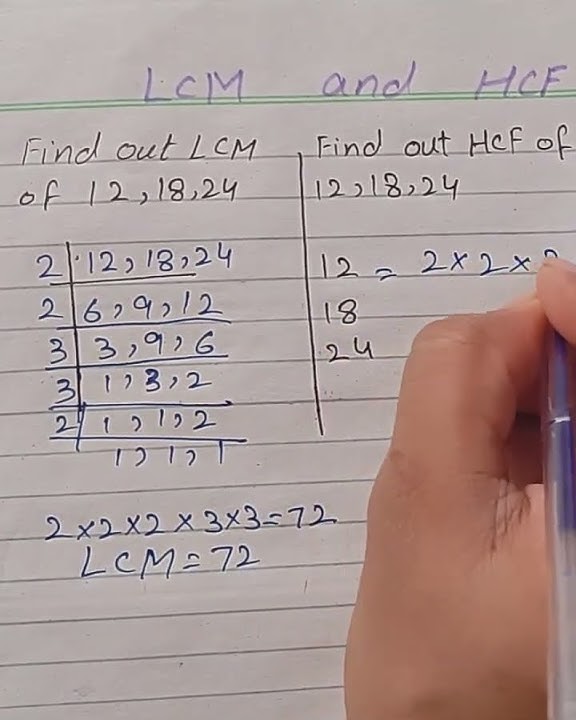 LCM and HCF
Find out LCM
of 12, 18, 24
2 12, 18, 24
2 6, 9, 12
3 3, 9, 6
3 1, 3, 2
2 1, 1, 2
1, 1, 1
2×2×2×3×3=72
LCM=72
Find out HCF of
12, 18, 24
12 = 2×2×
18
24